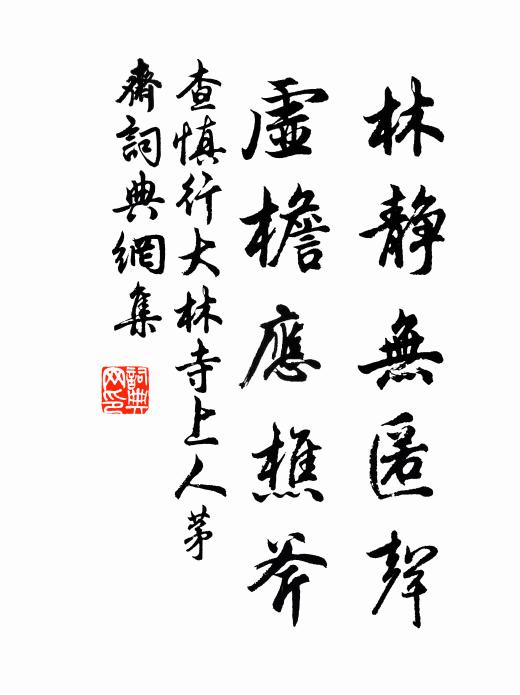 林靜無匿聲
虛檐應樵斧
查慎行大林寺上人茅
齋詞典網集
詞典网印